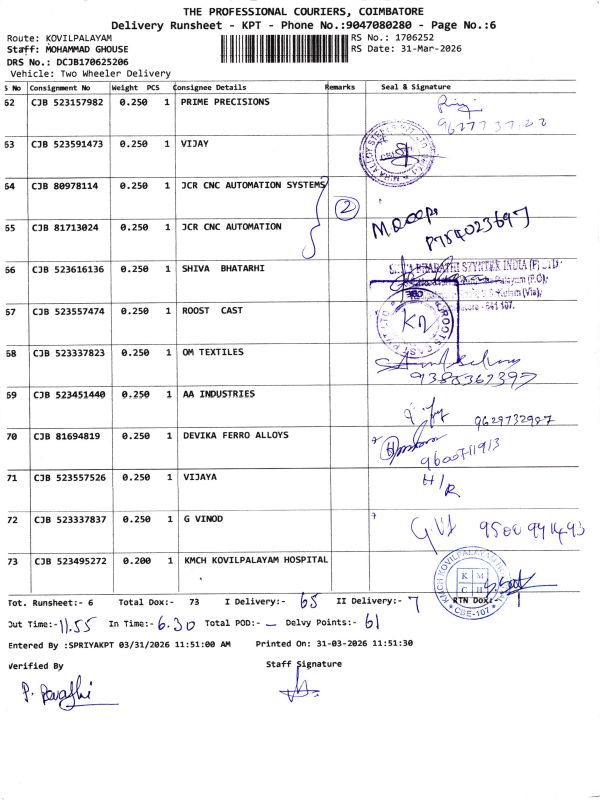 THE PROFESSIONAL COURIERS, COIMBATORE
Delivery Runsheet - KPT - Phone No.:9047080280 - Page No.:6
Route: KOVILPALAYAM RS No.: 1706252
Staff: MOHAMMAD GHOUSE RS Date: 31-Mar-2026
DRS No.: DCJB170625206
Vehicle: Two Wheeler Delivery
S No Consignment No Weight PCS Consignee Details Remarks Seal & Signature
62 CJB 523157982 0.250 1 PRIME PRECISIONS
63 CJB 523591473 0.250 1 VIJAY
64 CJB 80978114 0.250 1 JCR CNC AUTOMATION SYSTEMS
2
65 CJB 81713024 0.250 1 JCR CNC AUTOMATION
66 CJB 523616136 0.250 1 SHIVA BHATARHI
67 CJB 523557474 0.250 1 ROOST CAST
68 CJB 523337823 0.250 1 OM TEXTILES
9385367397
69 CJB 523451440 0.250 1 AA INDUSTRIES
9629732987
70 CJB 81694819 0.250 1 DEVIKA FERRO ALLOYS
71 CJB 523557526 0.250 1 VIJAYA H/R
72 CJB 523337837 0.250 1 G VINOD
73 CJB 523495272 0.200 1 KMCH KOVILPALAYAM HOSPITAL
Tot. Runsheet:- 6 Total Dox:- 73 I Delivery:- 65 II Delivery:- 7 RTN Dox:- 1
Out Time:- 11.55 In Time:- 6.30 Total POD:- - Delvy Points:- 61
Entered By :SPRIYAKPT 03/31/2026 11:51:00 AM Printed On: 31-03-2026 11:51:30
Verified By Staff Signature